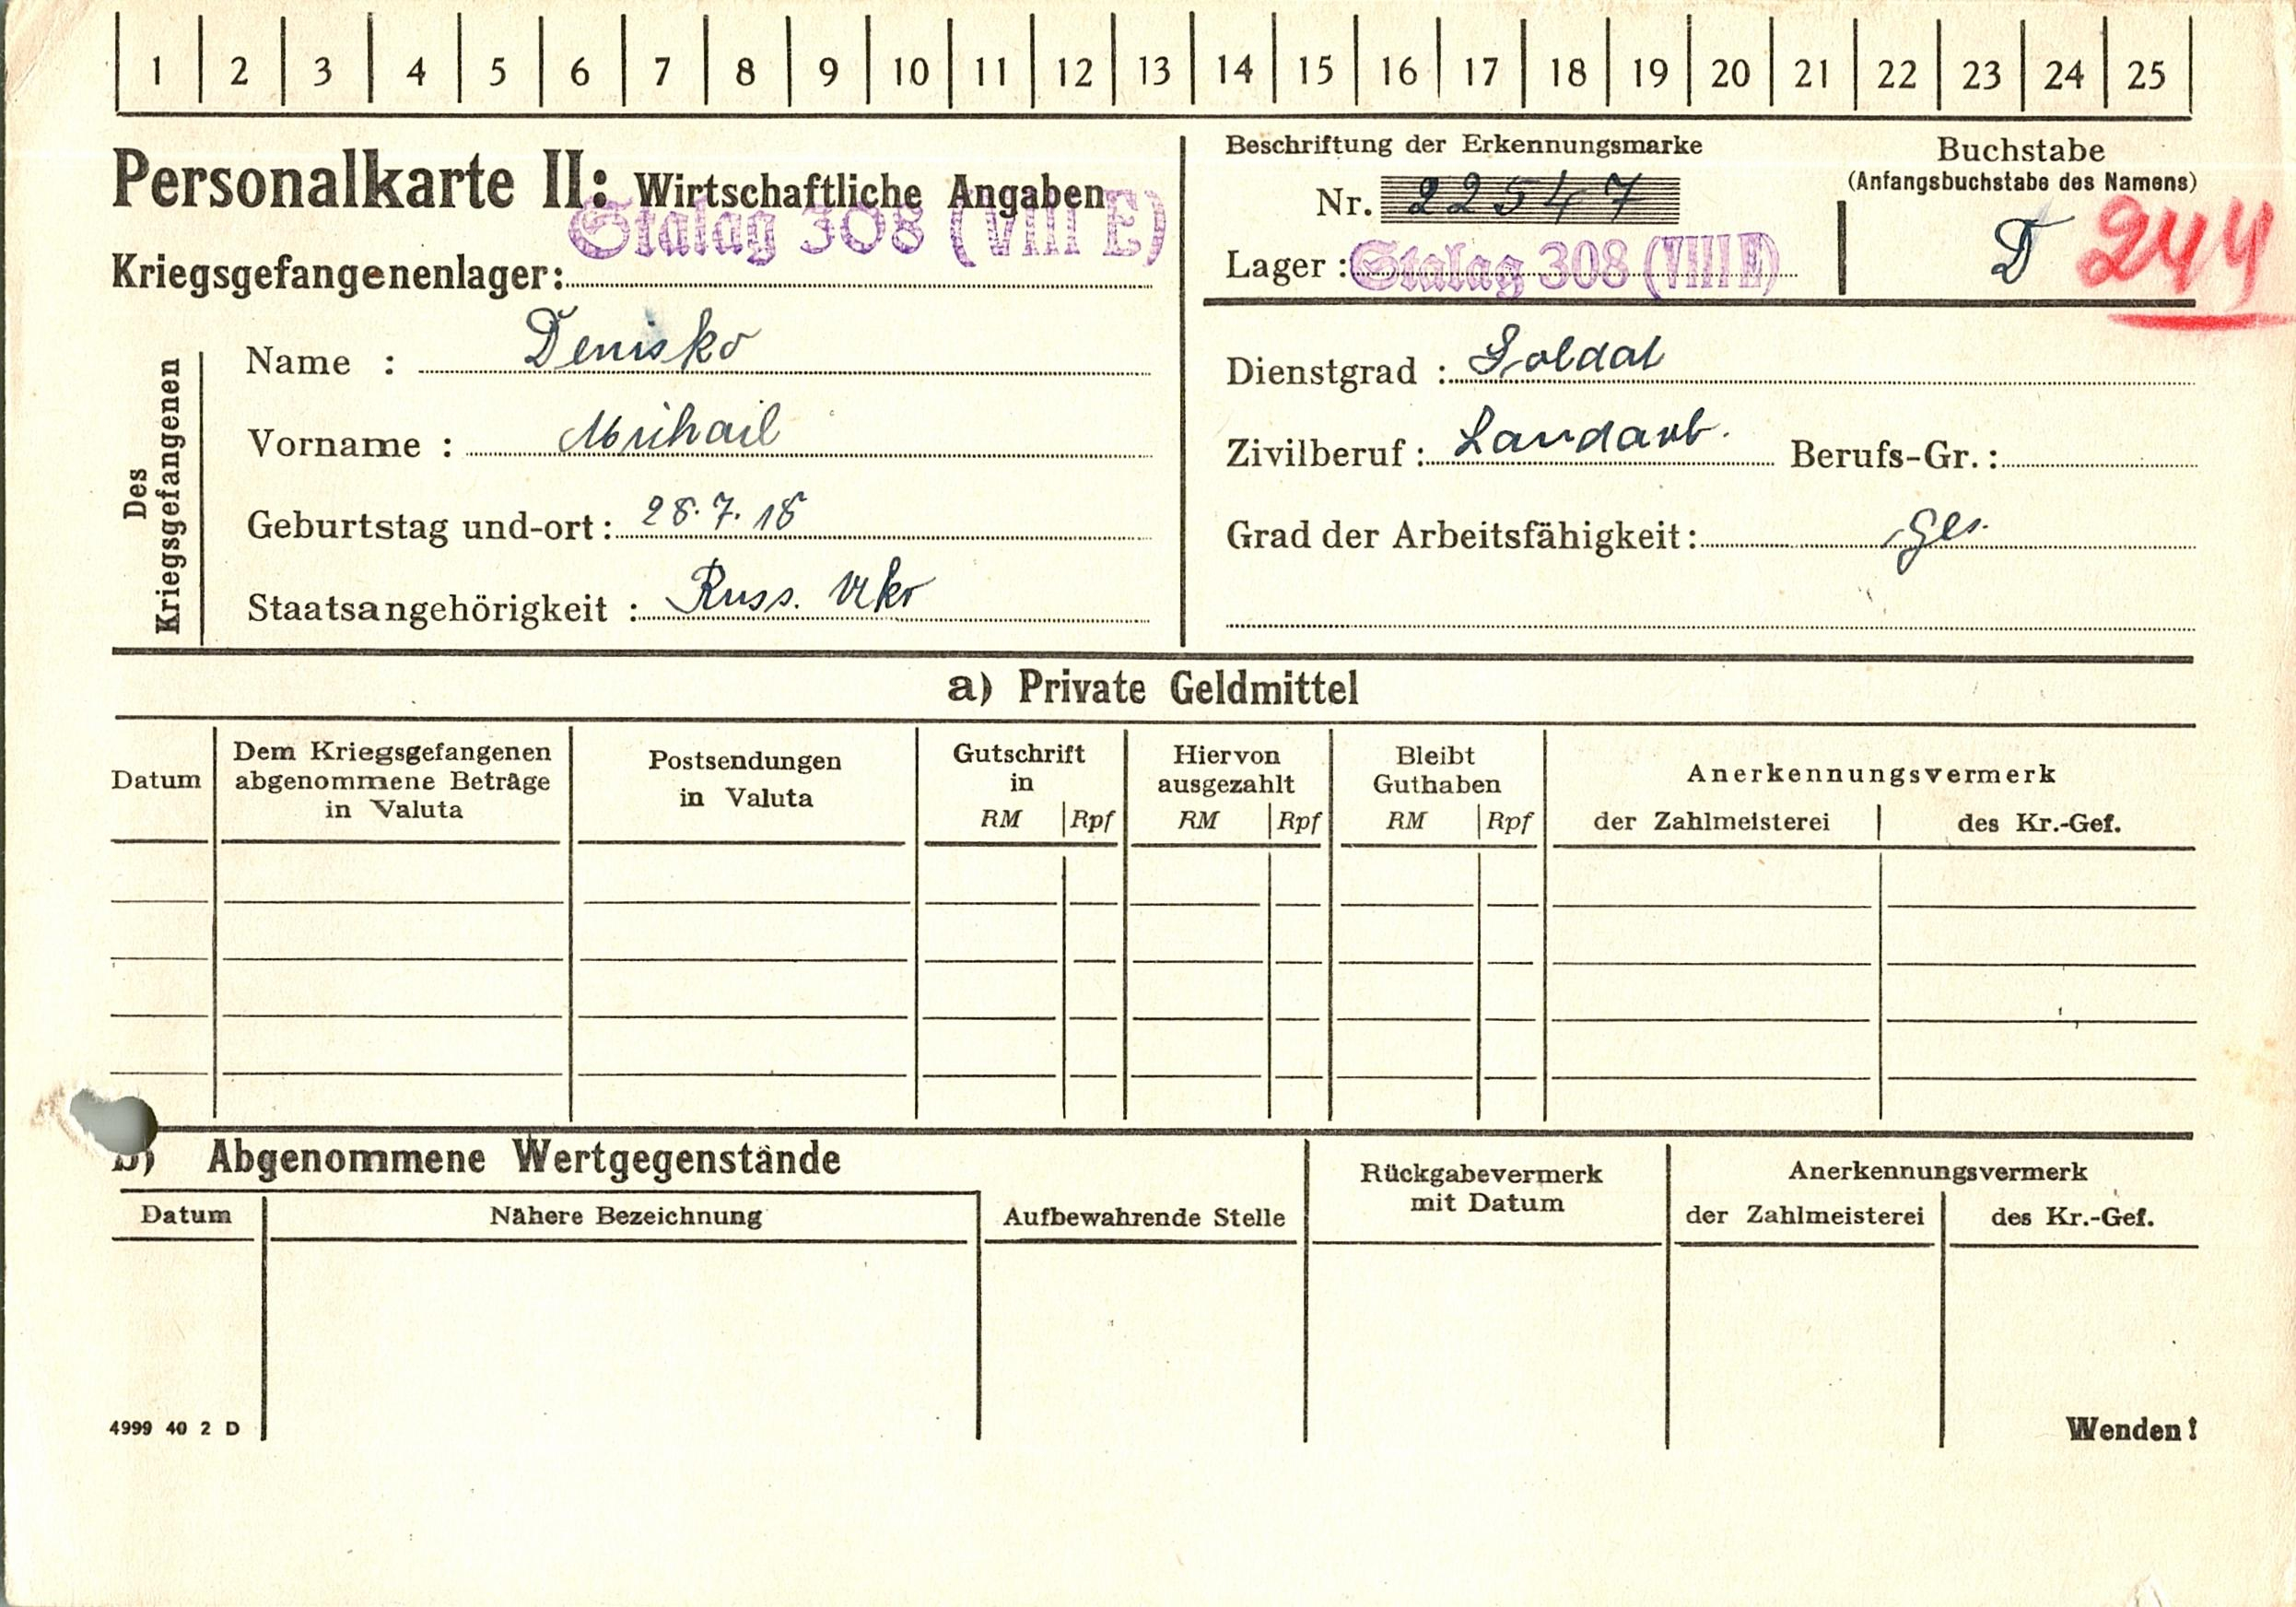 1 2 3 4 5 6 7 8 9 10 11 12 13 14 15 16 17 18 19 20 21 22 23 24 25
Personalkarte II: Wirtschaftliche Angaben
Stalag 308 (VIII E)
Kriegsgefangenenlager:
Beschriftung der Erkennungsmarke
Nr. 22547
Lager: Stalag 308 (VIII E)
Buchstabe
(Anfangsbuchstabe des Namens)
D 244
Des
Kriegsgefangenen
Name : Denisko
Vorname : Mihail
Geburtstag und-ort: 28.7.18
Staatsangehörigkeit : Russ. Ukr
Dienstgrad : Soldat
Zivilberuf: Landarb. Berufs-Gr.:
Grad der Arbeitsfähigkeit: Ges.
a) Private Geldmittel
Datum
Dem Kriegsgefangenen
abgenommene Beträge
in Valuta
Postsendungen
in Valuta
Gutschrift
in
RM Rpf
Hiervon
ausgezahlt
RM Rpf
Bleibt
Guthaben
RM Rpf
Anerkennungsvermerk
der Zahlmeisterei des Kr.-Gef.
b) Abgenommene Wertgegenstände
Datum
Nähere Bezeichnung
Aufbewahrende Stelle
Rückgabevermerk
mit Datum
Anerkennungsvermerk
der Zahlmeisterei des Kr.-Gef.
4999 40 2 D
Wenden!